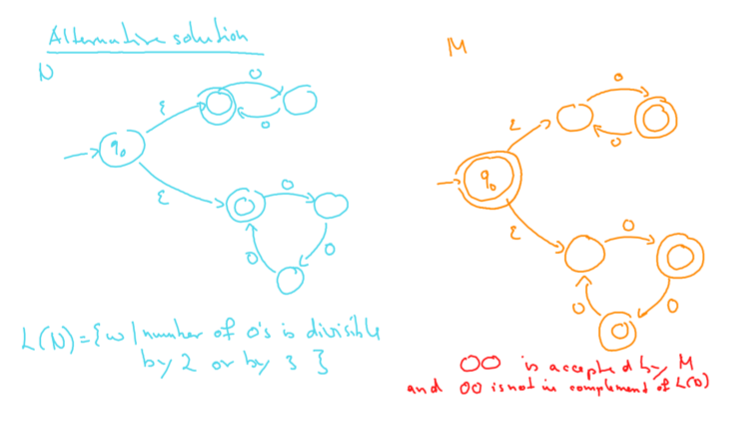 Alternative solution
N
M
ε
0
0
q₀
ε
0
0
0
ε
0
0
q₀
ε
0
0
0
L(N)={w | number of 0's is divisible
by 2 or by 3 }
00 is accepted by M
and 00 is not in complement of L(N)